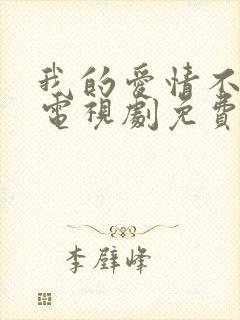 我的愛情不
電視劇免費
李壁峰